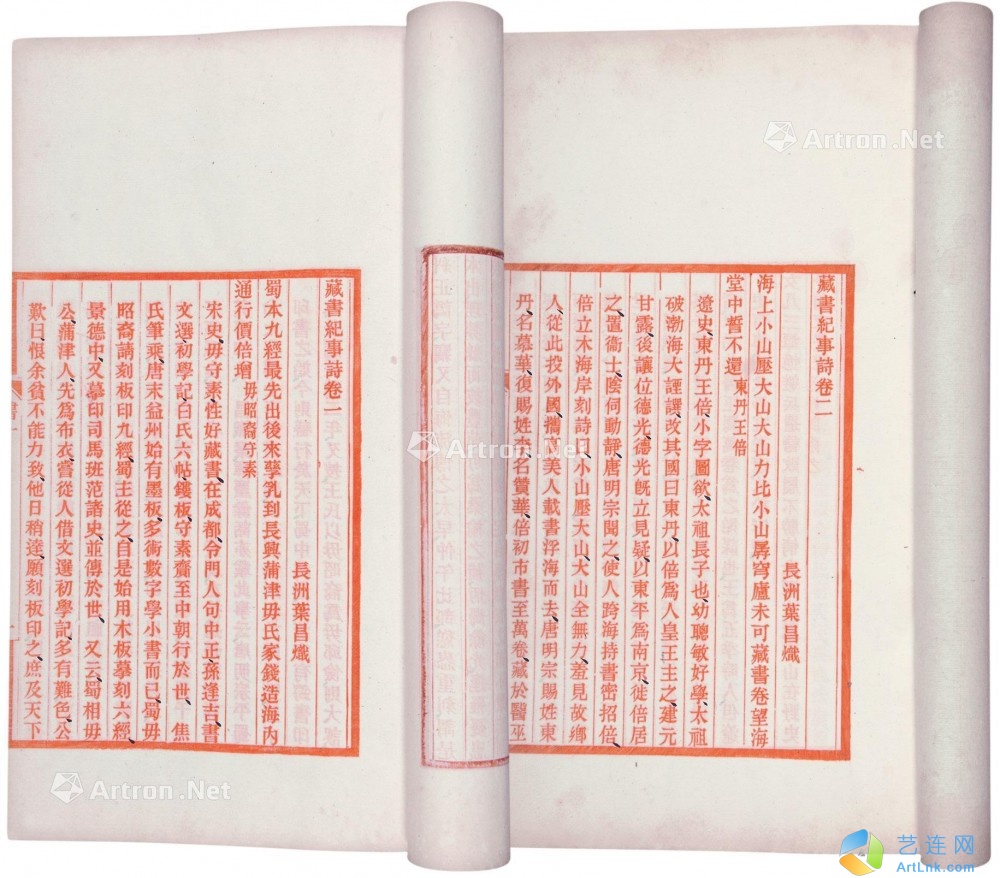 藏書紀事詩卷二
長洲葉昌熾
海上小山壓大山大山力比小山孱穹廬未可藏書卷望海
堂中誓不還 東丹王倍
遼史、東丹王倍、小字圖欲、太祖長子也、幼聰敏好學、太祖
破渤海大諲譔、改其國曰東丹、以倍爲人皇王主之、建元
甘露、後讓位德光、德光旣立見疑、以東平爲南京、徙倍居
之、置衞士陰伺動靜、唐明宗聞之、使人跨海持書密招倍、
倍立木海岸刻詩曰、小山壓大山、大山全無力、羞見故鄉
人、從此投外國、攜高美人載書浮海而去、唐明宗賜姓東
丹、名慕華、復賜姓李、名贊華、倍初市書至萬卷、藏於醫巫
藏書紀事詩卷一
長洲葉昌熾
蜀本九經最先出後來孳乳到長興蒲津毋氏家錢造海內
通行價倍增 毋昭裔守素
宋史、毋守素、性好藏書、在成都、令門人句中正、孫逢吉、書
文選、初學記、白氏六帖、鏤板、守素齎至中朝、行於世、 焦
氏筆乘、唐末益州始有墨板、多術數字學小書而已、蜀毋
昭裔請刻板印九經、蜀主從之、自是始用木板摹刻六經、
景德中、又摹印司馬班范諸史、並傳於世、 又云、蜀相毋
公、蒲津人、先爲布衣、嘗從人借文選初學記、多有難色、公
歎曰、恨余貧不能力致、他日稍達、願刻板印之、庶及天下
Artron.Net
Artron.Net
Artron.Net
Artron.Net
艺连网
ArtLnk.com